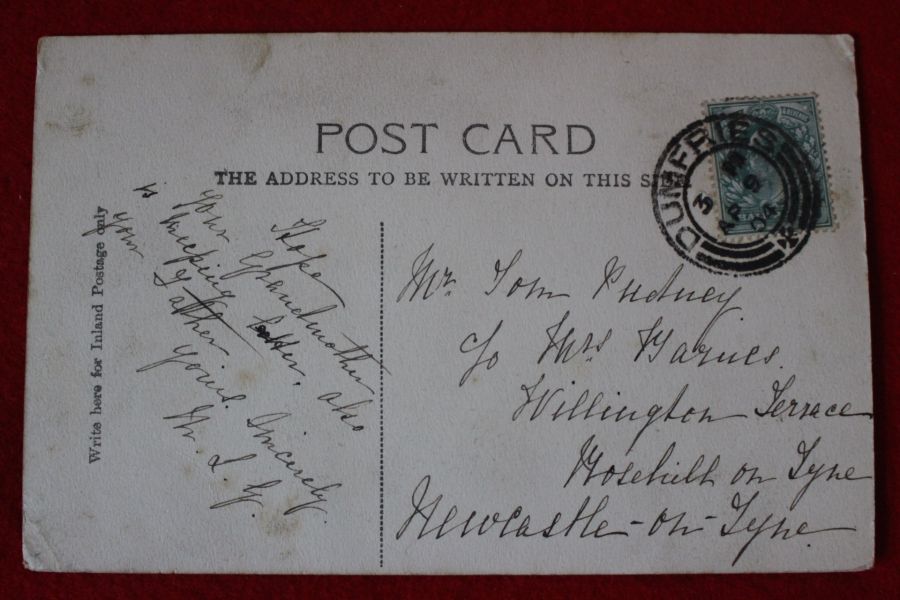 POST CARD
THE ADDRESS TO BE WRITTEN ON THIS SIDE
DUMFRIES
3
9
AP
04
Write here for Inland Postage only
Hope
your Grandmother also
is keeping better.
your Father
Yours Sincerely.
L G
Mr. Tom Pudney
c/o Mrs Barnes.
Willington Terrace
Rosehill on Tyne
Newcastle-on-Tyne.